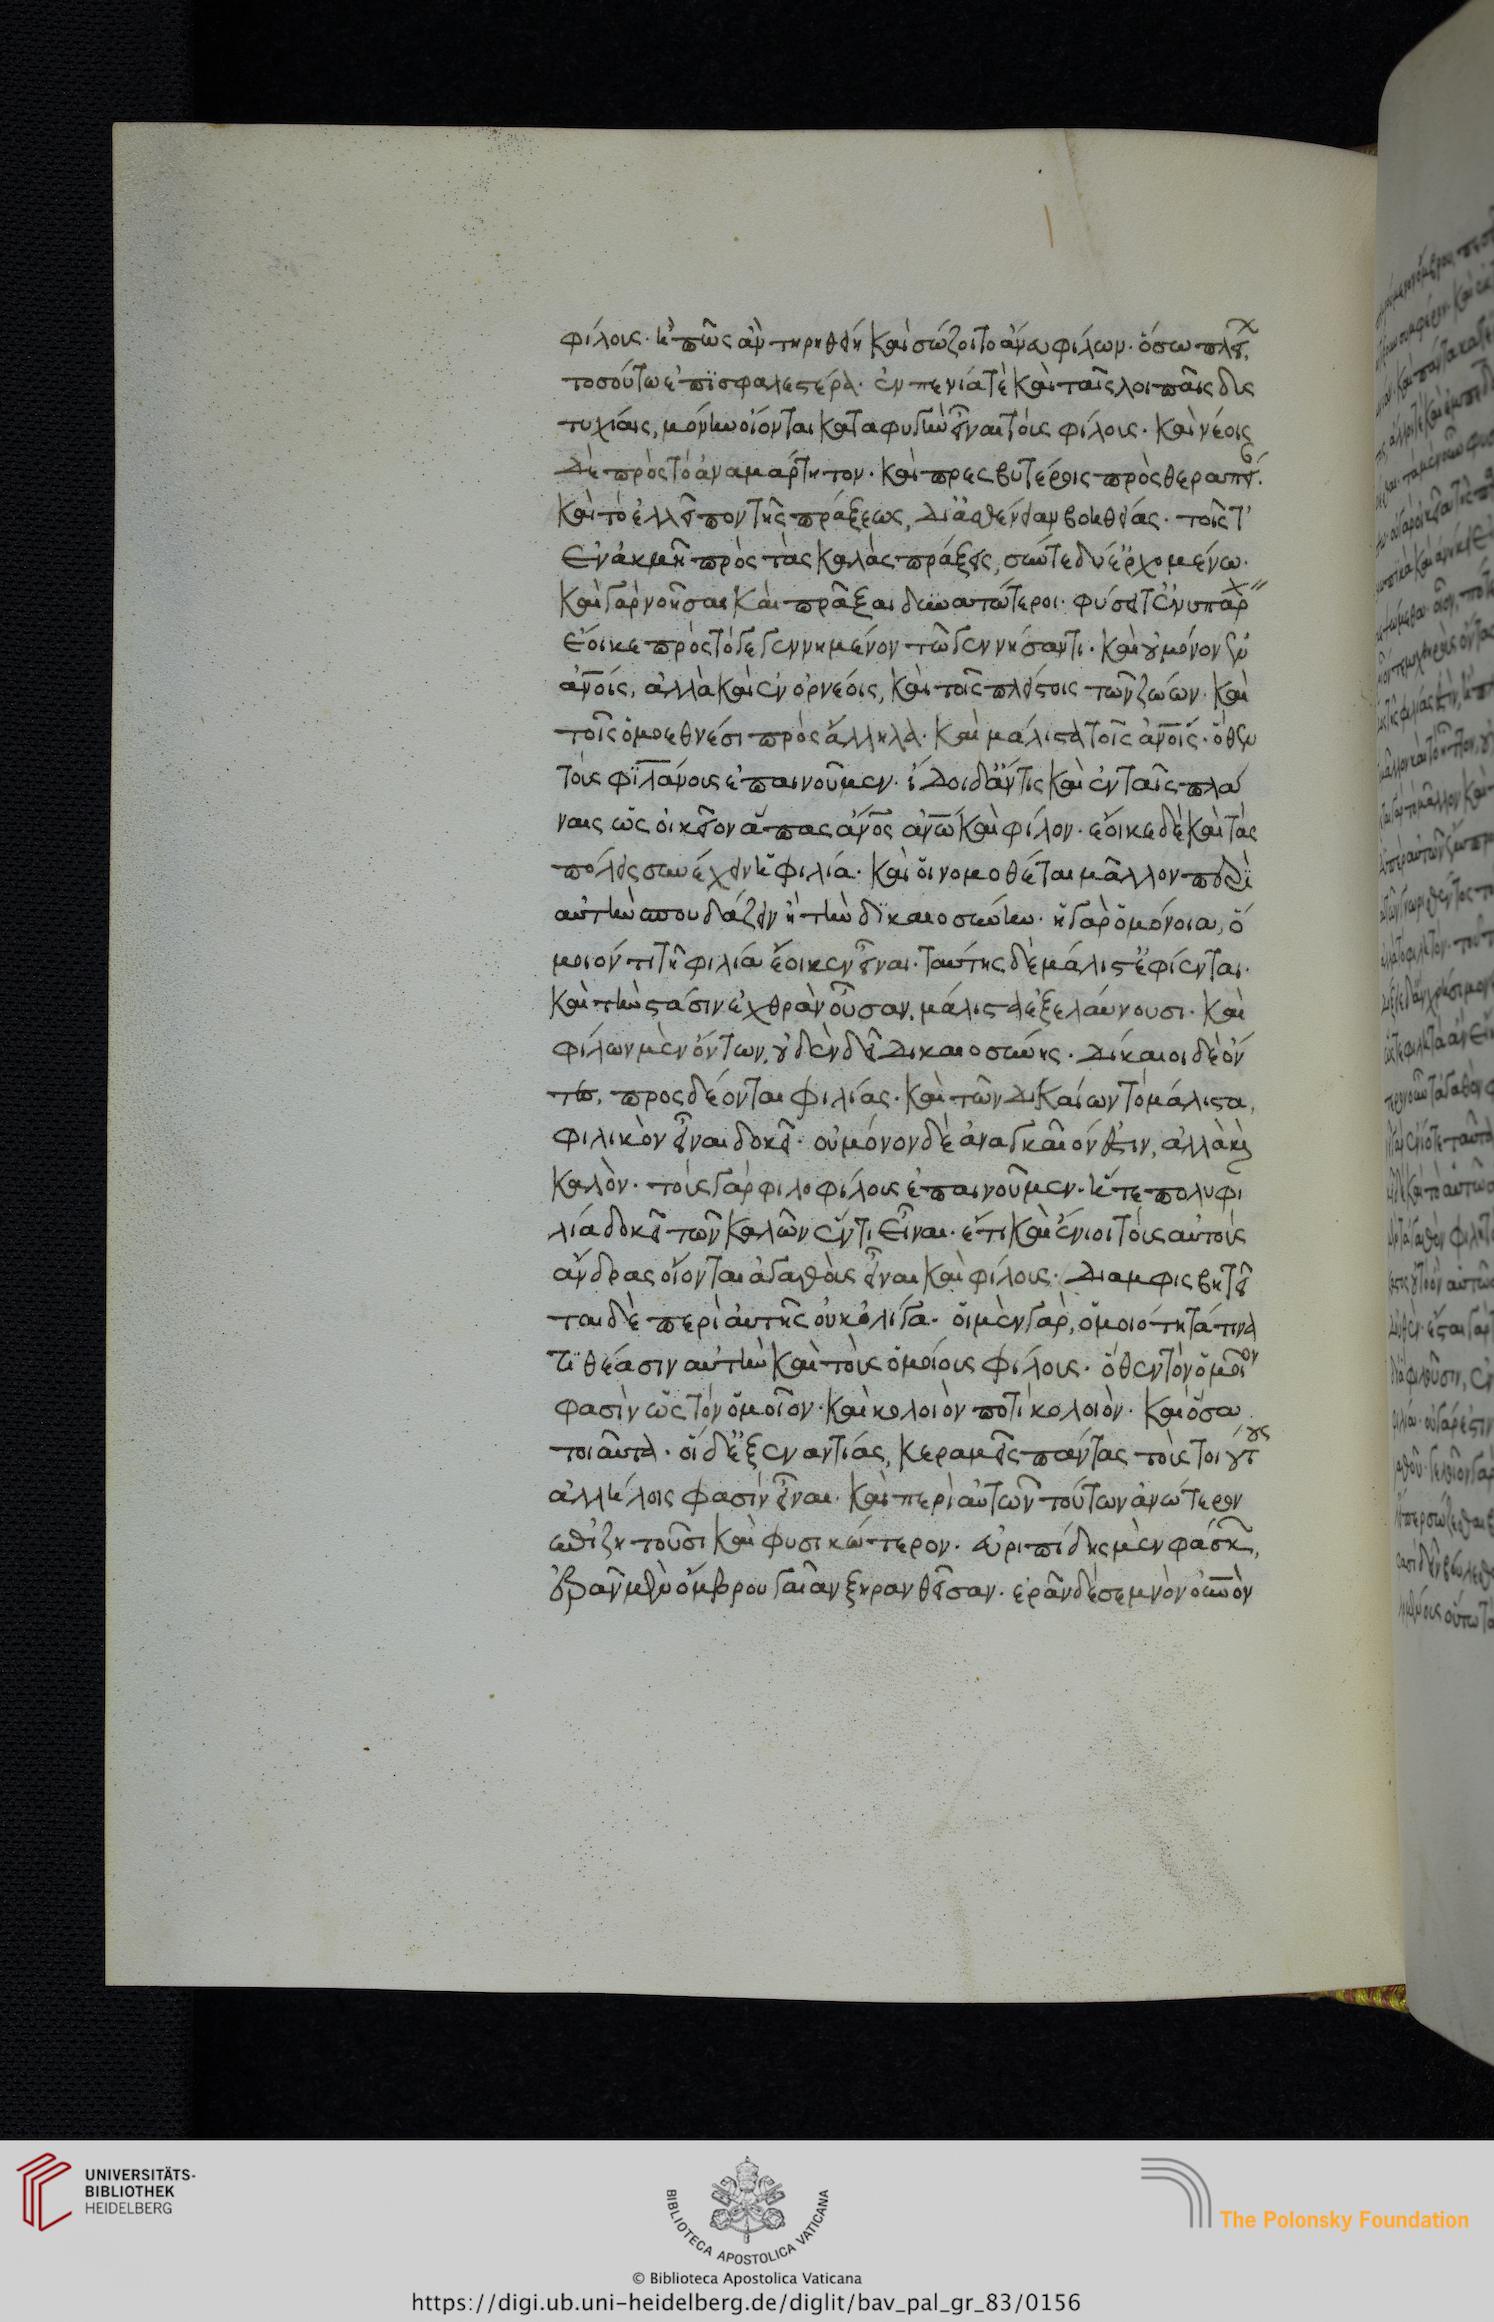 φίλους. ἢ πῶς ἂν τηρηθείη καὶ σώζοιτο ἄνευ φίλων. ὅσω πλεί,
τοσούτω ἐπισφαλεστέρα. ἐν πενία τὲ καὶ ταῖς λοιπαῖς δυς
τυχίαις, μόνην οἴονται καταφυγὴν εἶναι τοὺς φίλους. καὶ νέοις
δὲ πρὸς τὸ ἀναμάρτητον. καὶ πρεσβυτέροις πρὸς θεραπεί.
καὶ τὸ ἐλλεῖπον τῆς πράξεως, δι' ἀσθένειαν βοηθείας. τοῖς τ'
ἐν ἀκμῆ πρὸς τὰς καλὰς πράξεις, σύν τε δύ' ἐρχομένω.
καὶ γὰρ νοῆσαι καὶ πρᾶξαι δυνατώτεροι. φύσει τ' ἐνυπάρχ
ἔοικε πρὸς τὸ γεγεννημένον τῶ γεννήσαντι. καὶ οὐ μόνον ἐν
ἀνοις, ἀλλὰ καὶ ἐν ὀρνέοις, καὶ τοῖς πλείστοις τῶν ζώων. καὶ
τοῖς ὁμοεθνέσι πρὸς ἄλληλα. καὶ μάλιστα τοῖς ἀνοις. ὅθεν
τοὺς φιλανους ἐπαινοῦμεν. ἴδοι δ' ἄν τις καὶ ἐν ταῖς πλά
ναις ὡς οἰκεῖον ἅπας ἄνος ἀνω καὶ φίλον. ἔοικε δὲ καὶ τὰς
πόλεις συνέχειν ἡ φιλία. καὶ οἱ νομοθέται μᾶλλον περὶ
αὐτὴν σπουδάζειν ἢ τὴν δικαιοσύνην. ἡ γὰρ ὁμόνοια, ὅ
μοιόν τι τῆ φιλία ἔοικεν εἶναι. ταύτης δὲ μάλιστ' ἐφίενται.
καὶ τὴν στάσιν ἐχθρὰν οὖσαν, μάλιστα ἐξελαύνουσι. καὶ
φίλων μὲν ὄντων, οὐδὲν δεῖ δικαιοσύνης. δίκαιοι δὲ ὄν
τες, προςδέονται φιλίας. καὶ τῶν δικαίων τὸ μάλιστα,
φιλικὸν εἶναι δοκεῖ. οὐ μόνον δὲ ἀναγκαῖόν ἐστιν, ἀλλὰ κὶ
καλὸν. τοὺς γὰρ φιλοφίλους ἐπαινοῦμεν. ἥ τε πολυφι
λία δοκεῖ τῶν καλῶν ἕν τι εἶναι. ἔτι καὶ ἔνιοι τοὺς αὐτοὺς
ἄνδρας οἴονται ἀγαθοὺς εἶναι καὶ φίλους. διαμφισβητεῖ
ται δὲ περὶ αὐτῆς οὐκ ὀλίγα. οἱ μὲν γὰρ, ὁμοιότητά τινα
τιθέασιν αὐτὴν καὶ τοὺς ὁμοίους φίλους. ὅθεν τὸν ὅμοιον
φασὶν ὡς τὸν ὅμοῖον. καὶ κολοιὸν ποτὶ κολοιὸν. καὶ ὅσα
τοιαῦτα. οἱ δ' ἐξ ἐναντίας, κεραμεῖς πάντας τοὺς τοιούτους
ἀλλήλοις φασὶν εἶναι. καὶ περὶ αὐτῶν τούτων ἀνώτερον
ἐπιζητοῦσι καὶ φυσικώτερον. εὐριπίδης μὲν φάσκων,
ἐρᾶν μὲν ὄμβρου γαῖαν ξηρανθεῖσαν. ἐρᾶν δὲ σεμνὸν οὐνὸν
UNIVERSITÄTS-
BIBLIOTHEK
HEIDELBERG
BIBLIOTECA APOSTOLICA VATICANA
The Polonsky Foundation
© Biblioteca Apostolica Vaticana
https://digi.ub.uni-heidelberg.de/diglit/bav_pal_gr_83/0156